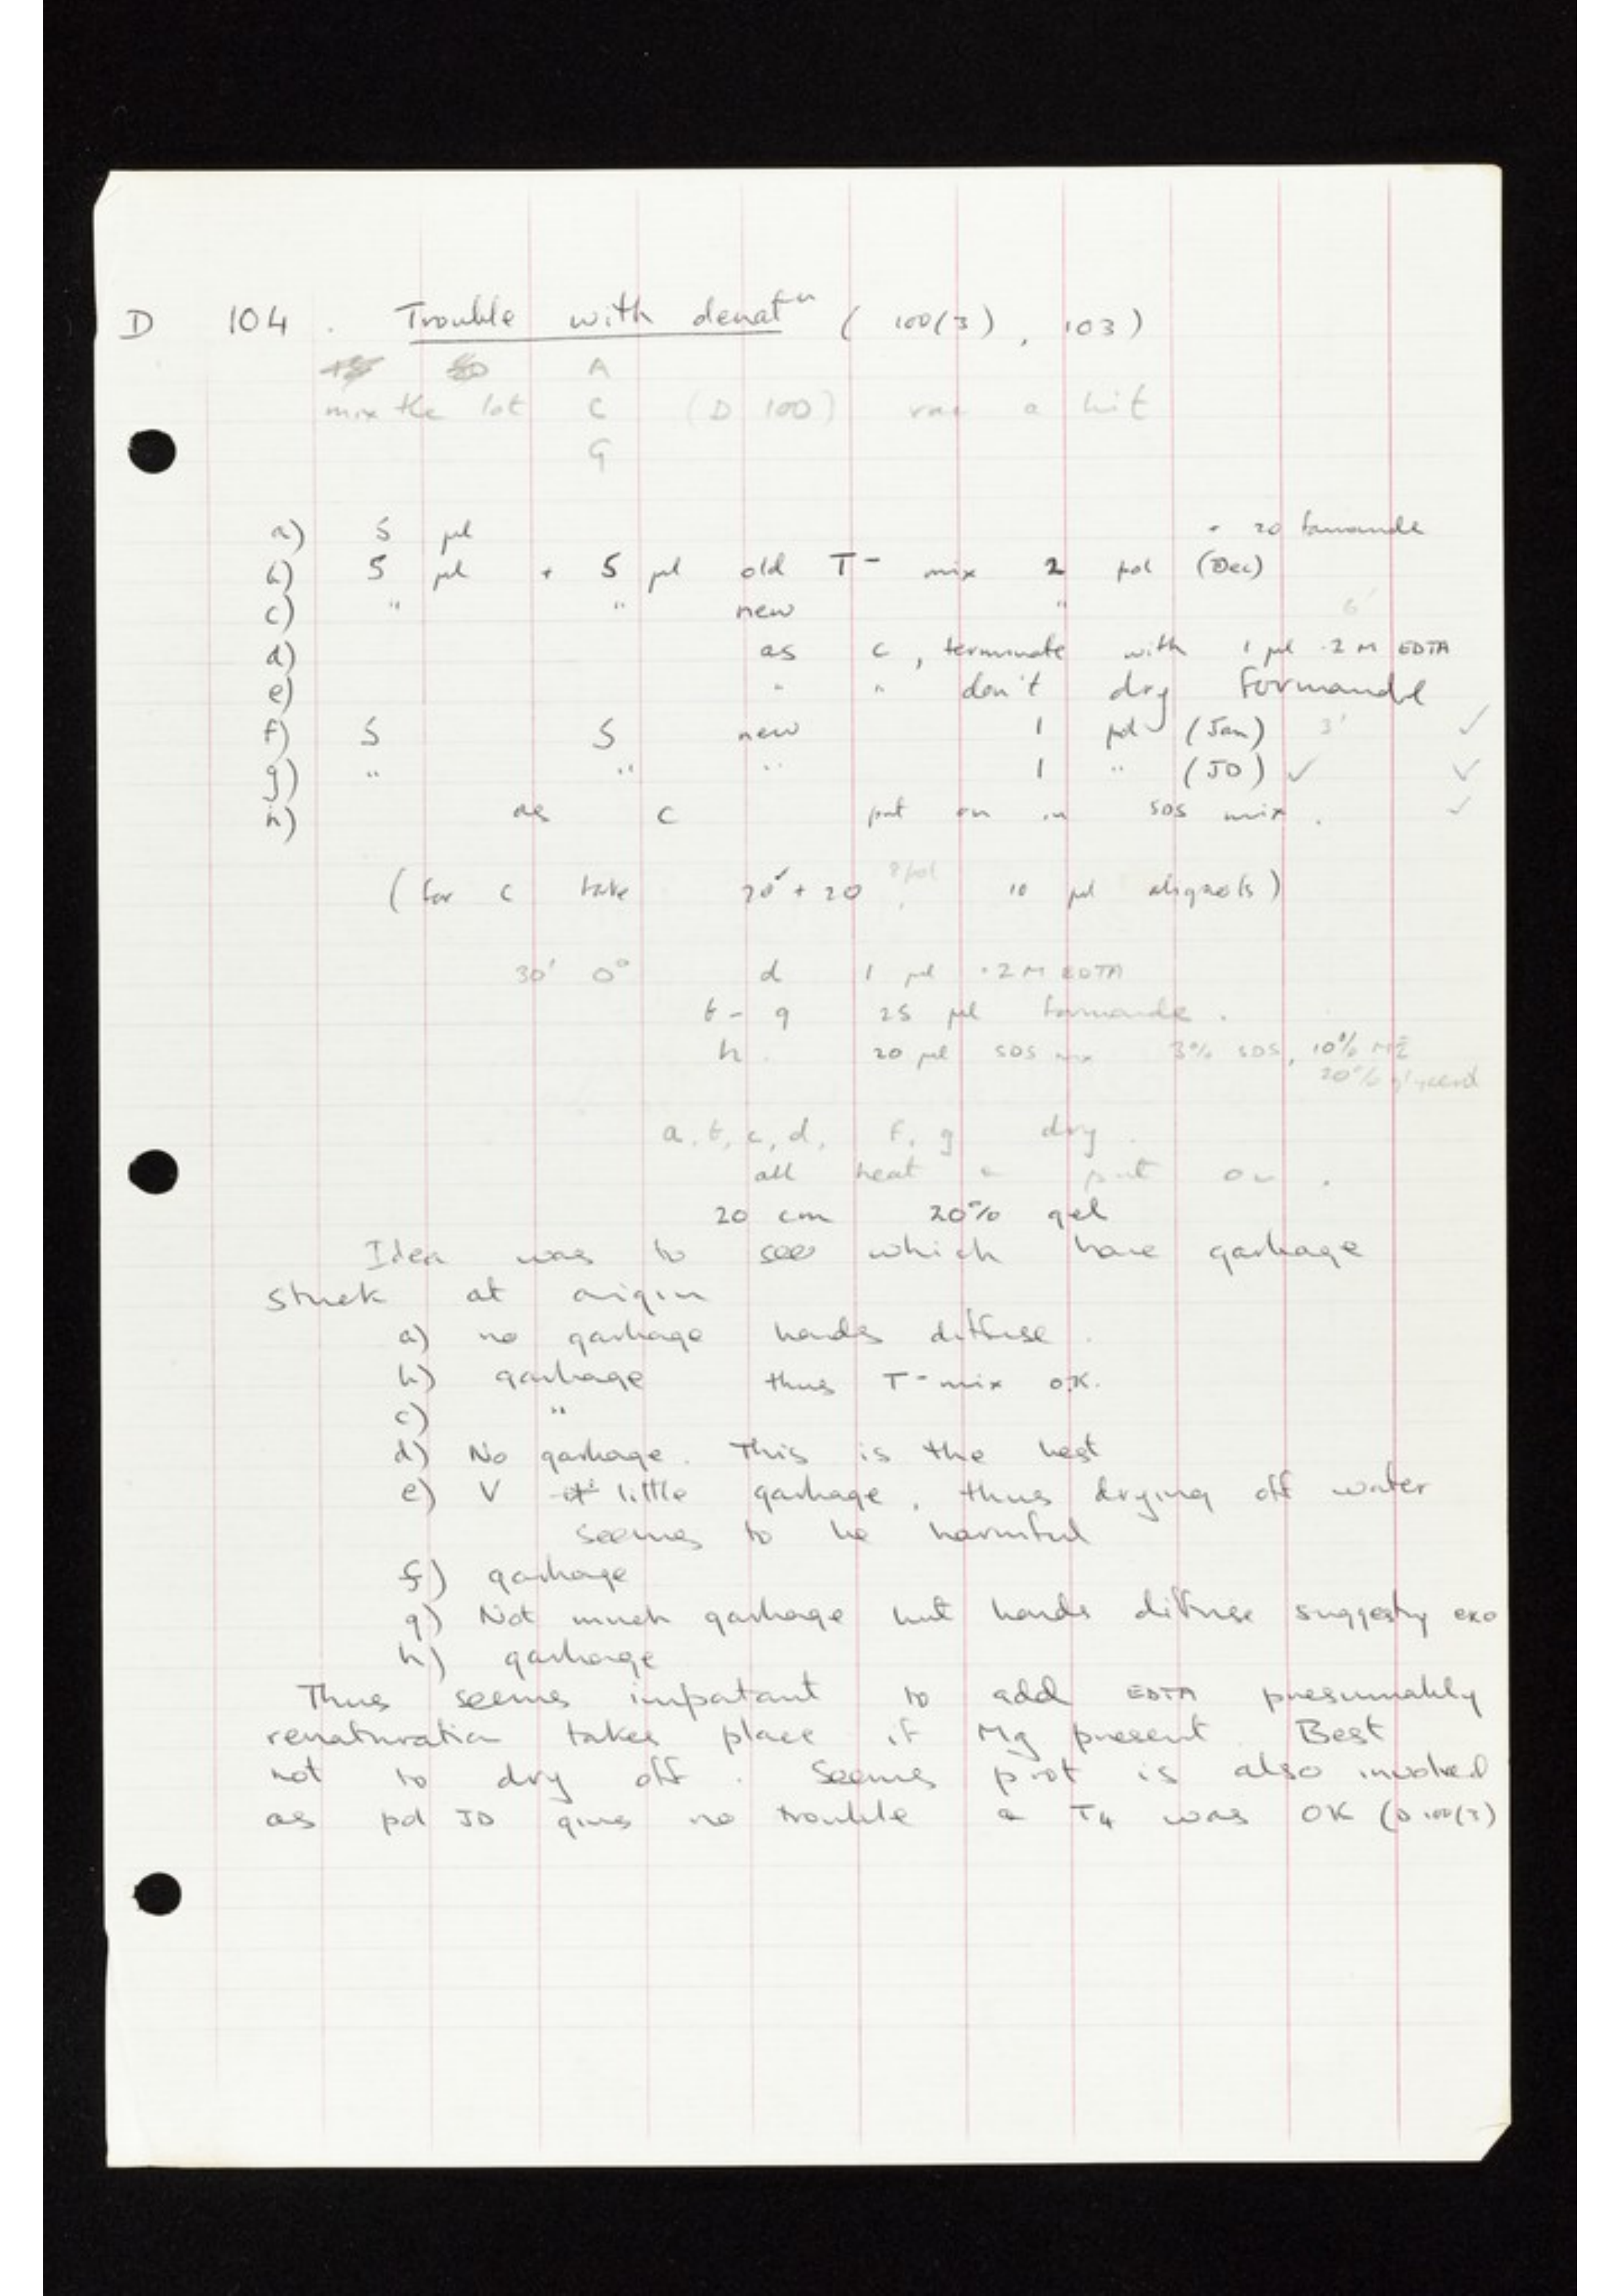 D 104. Trouble with denatn ( 100(3), 103 )
A
mix the lot C (D 100) vac a bit
G
a) 5 µl + 20 formamide
b) 5 µl + 5 µl old T- mix 2 pol (Dec)
c) " " new " 6'
d) as c, terminate with 1 µl .2 M EDTA
e) " " don't dry formamide
f) 5 5 new 1 pol (Jan) 3' ✓
g) " " " 1 " (JD) ✓ ✓
h) as c put on in SDS mix. ✓
(for c take 20 + 20 8 pol 10 µl aliquots)
30' 0° d 1 µl .2 M EDTA
b - g 25 µl formamide.
h. 20 µl SDS mix 3% SDS, 10% ME
20% glycerol
a, b, c, d, f, g dry.
all heat & put on.
20 cm 20% gel
Idea was to see which have garbage
stuck at origin
a) no garbage bands diffuse.
b) garbage thus T- mix OK.
c) "
d) No garbage. This is the best
e) V little garbage, thus drying off water
seems to be harmful
f) garbage
g) Not much garbage but bands diffuse suggestg exo
h) garbage
Thus seems impotant to add EDTA presumably
renaturation takes place if Mg present. Best
not to dry off. Seems prot is also involved
as pol JD gives no trouble & T4 was OK (D 100(3)